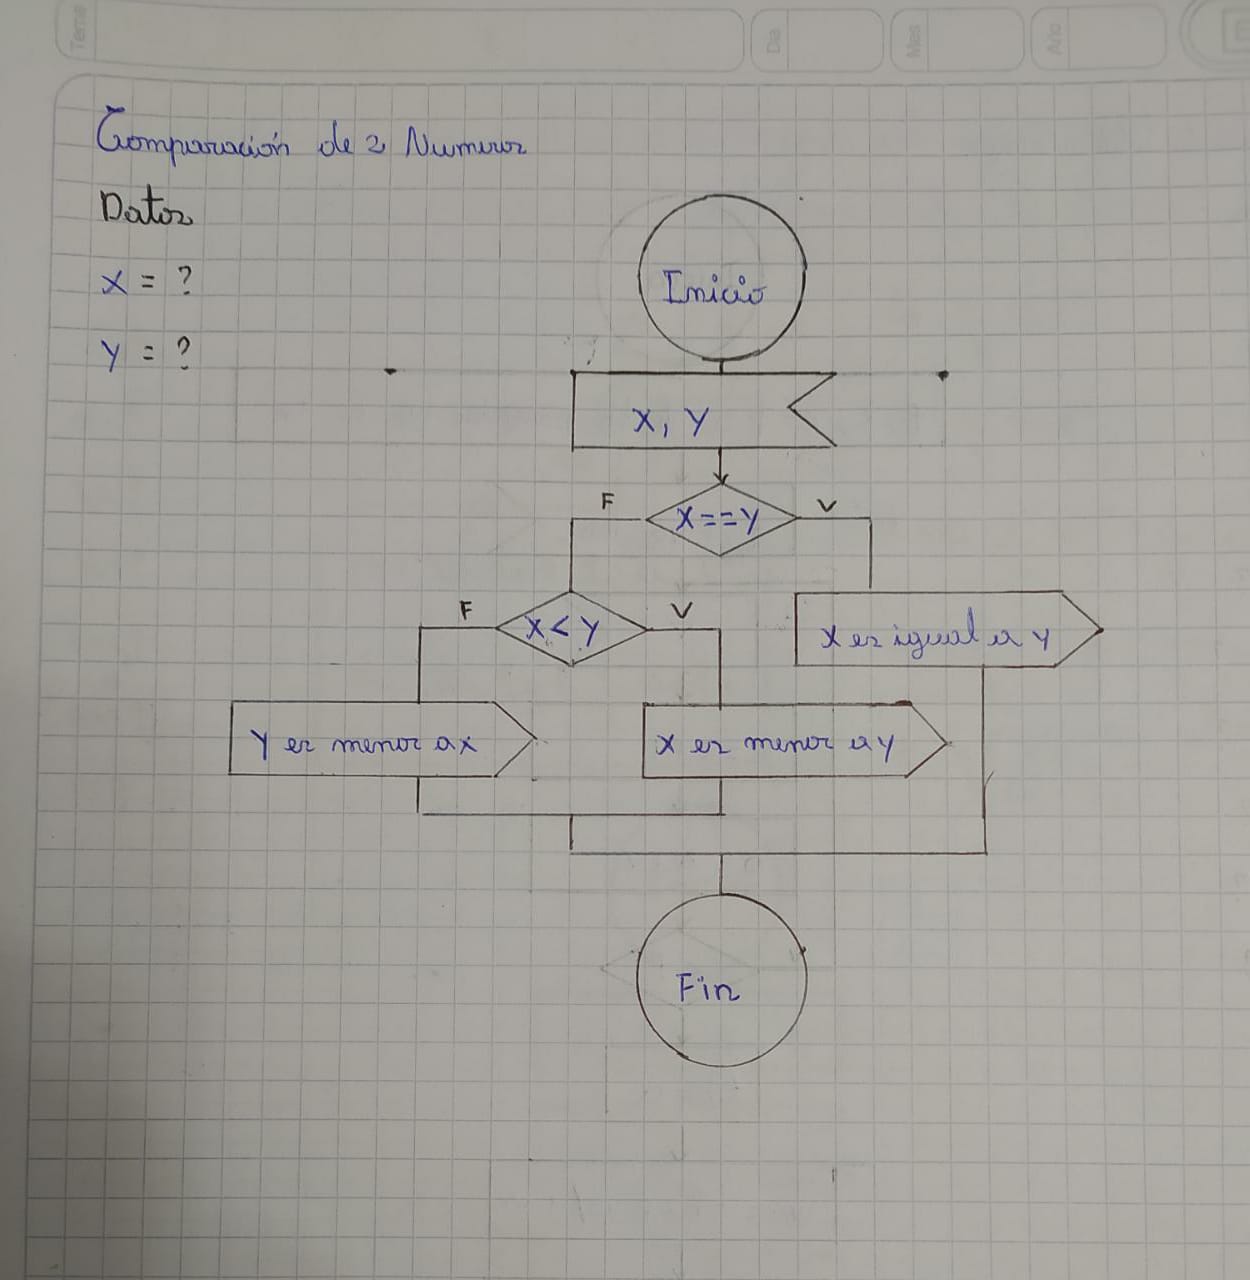 Tema
Dia
Mes
Año
Comparación de 2 Numeros
Datos
X = ?
Y = ?
Inicio
X, Y
F
X==Y
V
F
X < Y
V
X es igual a y
Y es menor a x
X es menor a y
Fin